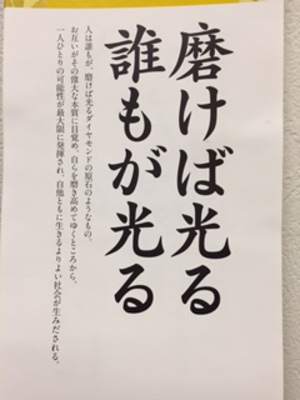 磨けば光る
誰もが光る
人は誰もが、磨けば光るダイヤモンドの原石のようなもの。
お互いがその偉大な本質に目覚め、自らを磨き高めてゆくところから、
一人ひとりの可能性が最大限に発揮され、自他ともに生きるよりよい社会が生みだされる。